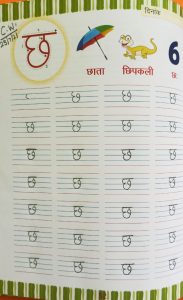 दिनांक
C.W.
छ
6
छाता छिपकली
छ छ छ छ
छ छ छ छ
छ छ छ छ
छ छ छ छ
छ छ छ छ
छ छ छ छ
छ छ छ छ